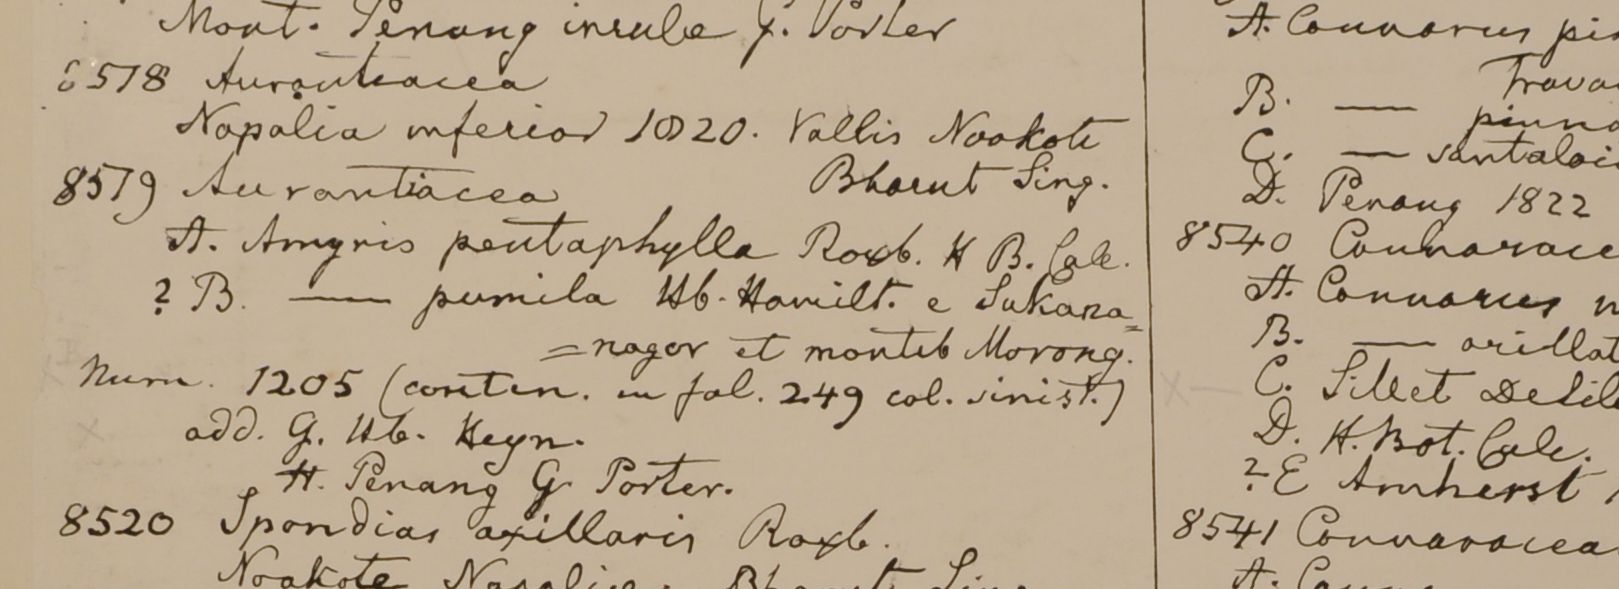 Mont. Penang insulae G. Porter
8518 Aurantiacea
Napalia inferior 1820. Vallis Noakote
Bharut Sing.
8519 Aurantiacea
A. Amyris pentaphylla Roxb. H B. Calc.
? B. — pumila Hb. Hamilt. e Sukana=
=nagor et montib Morong.
Num. 1205 (contin. in fol. 249 col. sinist.)
add. G. Hb. Heyn.
H. Penang G. Porter.
8520 Spondias axillaris Roxb.
Noakote Napaliae Bharut Sing
A. Connarus
B. —
C. —
D. Penang 1822
8540
A. Connarus
B. —
C. Sillet
D. H. Bot. Calc.
? E Amherst
8541 Connaracea
A.